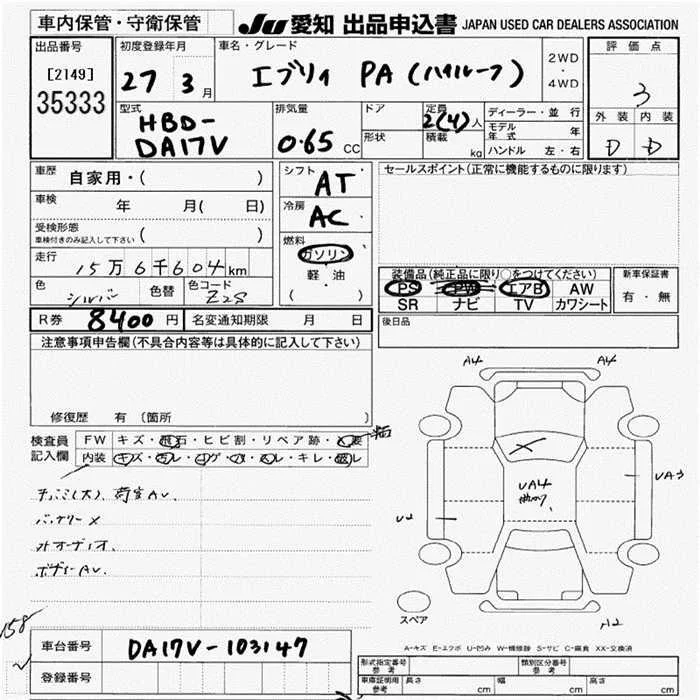 車内保管・守衛保管
JU 愛知 出品申込書 JAPAN USED CAR DEALERS ASSOCIATION
出品番号
[2149]
35333
初度登録年月
27 3月
車名・グレード
エブリィ PA (ハイルーフ)
2WD
・
4WD
評価点
3
外装 内装
D D
型式
HBD-
DA17V
排気量
0.65 CC
ドア
形状
定員
2(4)人
積載
kg
ディーラー・並行
モデル年式 年
ハンドル 左・右
車歴 自家用・( )
車検 年 月( 日)
受検形態
車検付きのみ記入して下さい ( )
走行 15万6千604km
色 シルバー 色替 色コード Z2S
シフト
AT
冷房
AC
燃料
ガソリン
軽・油
( )
セールスポイント(正常に機能するものに限ります)
装備品(純正品に限り○をつけてください)
PS PW エアB AW
SR ナビ TV カワシート
新車保証書
有・無
R券 8400円 名変通知期限 月 日
後日品
注意事項申告欄(不具合内容等は具体的に記入して下さい)
修復歴 有 (箇所 )
検査員
記入欄
FW キズ・飛石・ヒビ割・リペア跡・×要
内装 キズ・汚レ・コゲ・穴・スレ・キレ・破レ
バッテリー×
ボデーAU.
A4 A4
UA4
UA3
U2
A2
スペア
A-キズ E-エクボ U-凹み W-補修跡 S-サビ C-腐食 XX-交換済
158
車台番号 DA17V-103147
登録番号
形式指定番号
参考
類別区分番号
参考
車庫証明用
参考
長さ cm 幅 cm 高さ cm